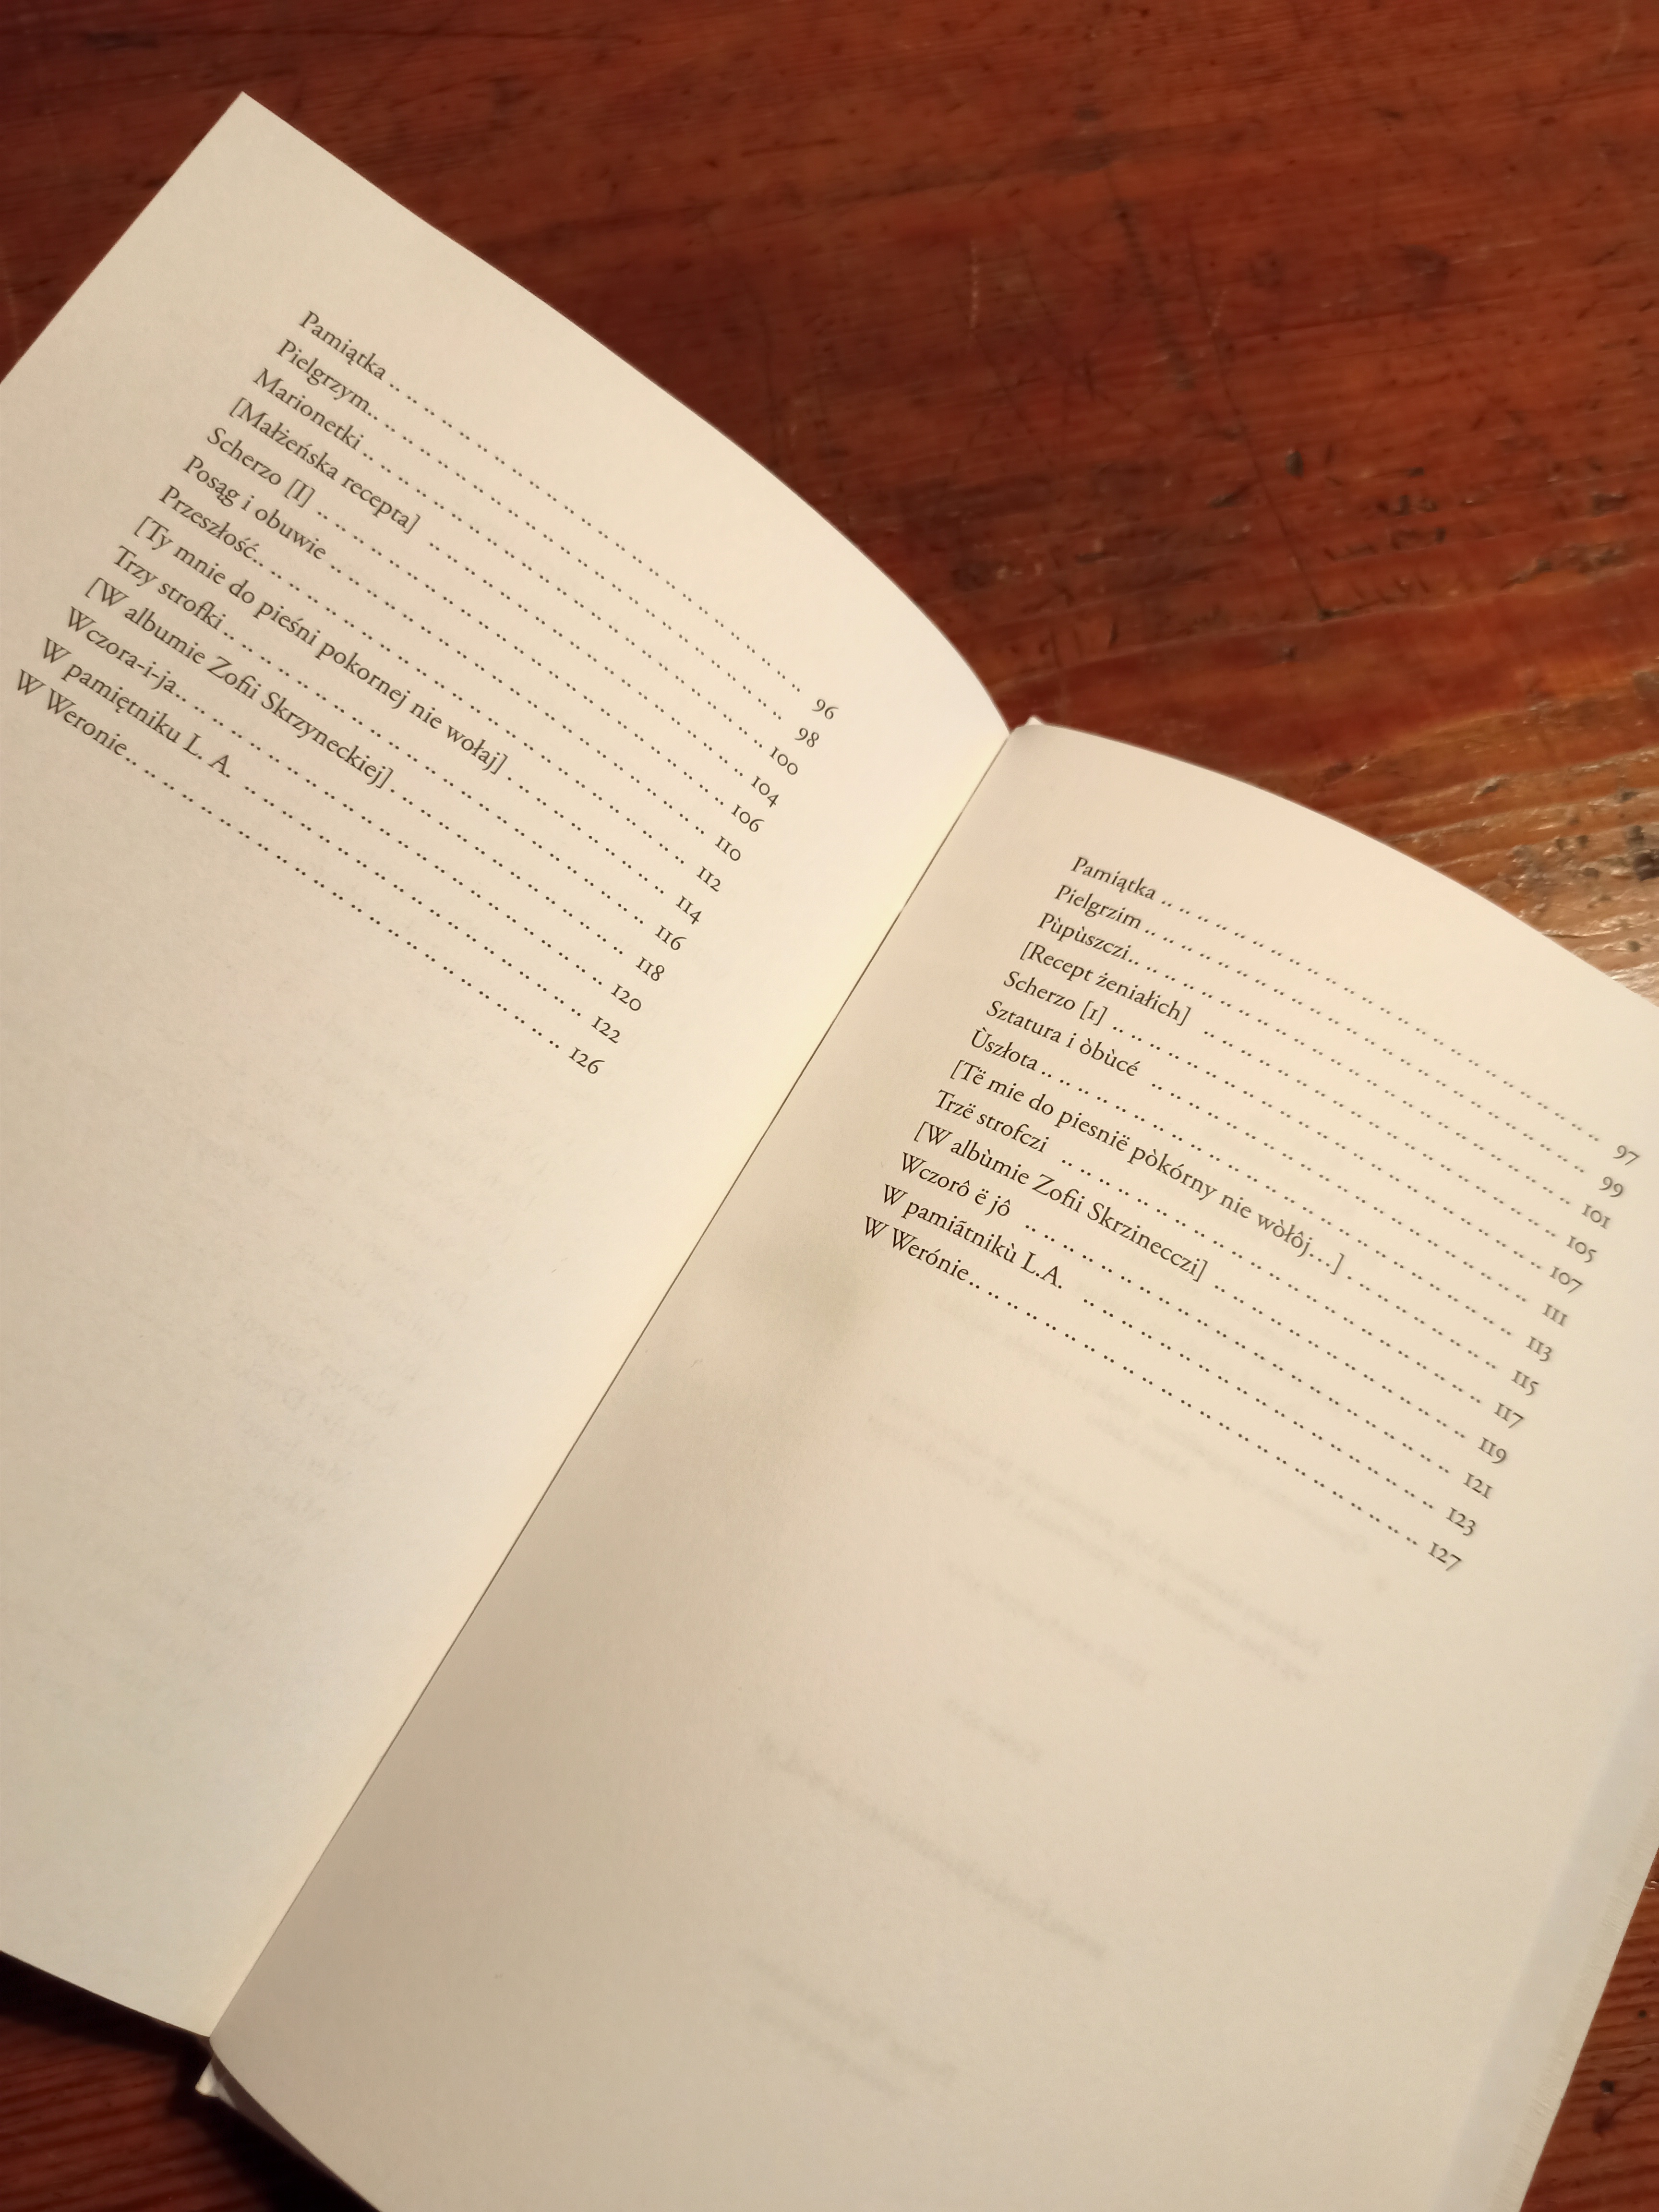 Pamiątka .. .. .. .. .. .. .. .. .. .. .. .. .. .. .. .. .. .. 96
Pielgrzym.. .. .. .. .. .. .. .. .. .. .. .. .. .. .. .. .. .. 98
Marionetki .. .. .. .. .. .. .. .. .. .. .. .. .. .. .. .. .. 100
[Małżeńska recepta] .. .. .. .. .. .. .. .. .. .. .. .. .. .. 104
Scherzo [I] .. .. .. .. .. .. .. .. .. .. .. .. .. .. .. .. .. 106
Posąg i obuwie .. .. .. .. .. .. .. .. .. .. .. .. .. .. .. .. 110
Przeszłość.. .. .. .. .. .. .. .. .. .. .. .. .. .. .. .. .. .. 112
[Ty mnie do pieśni pokornej nie wołaj] . .. .. .. .. .. .. .. 114
Trzy strofki .. .. .. .. .. .. .. .. .. .. .. .. .. .. .. .. .. 116
[W albumie Zofii Skrzyneckiej] . .. .. .. .. .. .. .. .. .. .. 118
Wczora-i-ja.. .. .. .. .. .. .. .. .. .. .. .. .. .. .. .. .. .. 120
W pamiętniku L. A. .. .. .. .. .. .. .. .. .. .. .. .. .. .. .. 122
W Weronie.. .. .. .. .. .. .. .. .. .. .. .. .. .. .. .. .. .. 126
Pamiątka .. .. .. .. .. .. .. .. .. .. .. .. .. .. .. .. .. .. 97
Pielgrzim .. .. .. .. .. .. .. .. .. .. .. .. .. .. .. .. .. .. 99
Pùpùszczi.. .. .. .. .. .. .. .. .. .. .. .. .. .. .. .. .. .. 101
[Recept żeniałich] .. .. .. .. .. .. .. .. .. .. .. .. .. .. .. 105
Scherzo [1] .. .. .. .. .. .. .. .. .. .. .. .. .. .. .. .. .. 107
Sztatura i òbùcé .. .. .. .. .. .. .. .. .. .. .. .. .. .. .. 111
Ùszłota .. .. .. .. .. .. .. .. .. .. .. .. .. .. .. .. .. .. .. 113
[Të mie do piesnië pòkórny nie wòłôj…] . .. .. .. .. .. .. .. 115
Trzë strofczi .. .. .. .. .. .. .. .. .. .. .. .. .. .. .. .. .. 117
[W albùmie Zofii Skrzinecczi] .. .. .. .. .. .. .. .. .. .. .. 119
Wczorô ë jô .. .. .. .. .. .. .. .. .. .. .. .. .. .. .. .. .. 121
W pamiãtnikù L.A. .. .. .. .. .. .. .. .. .. .. .. .. .. .. .. 123
W Werónie.. .. .. .. .. .. .. .. .. .. .. .. .. .. .. .. .. .. 127